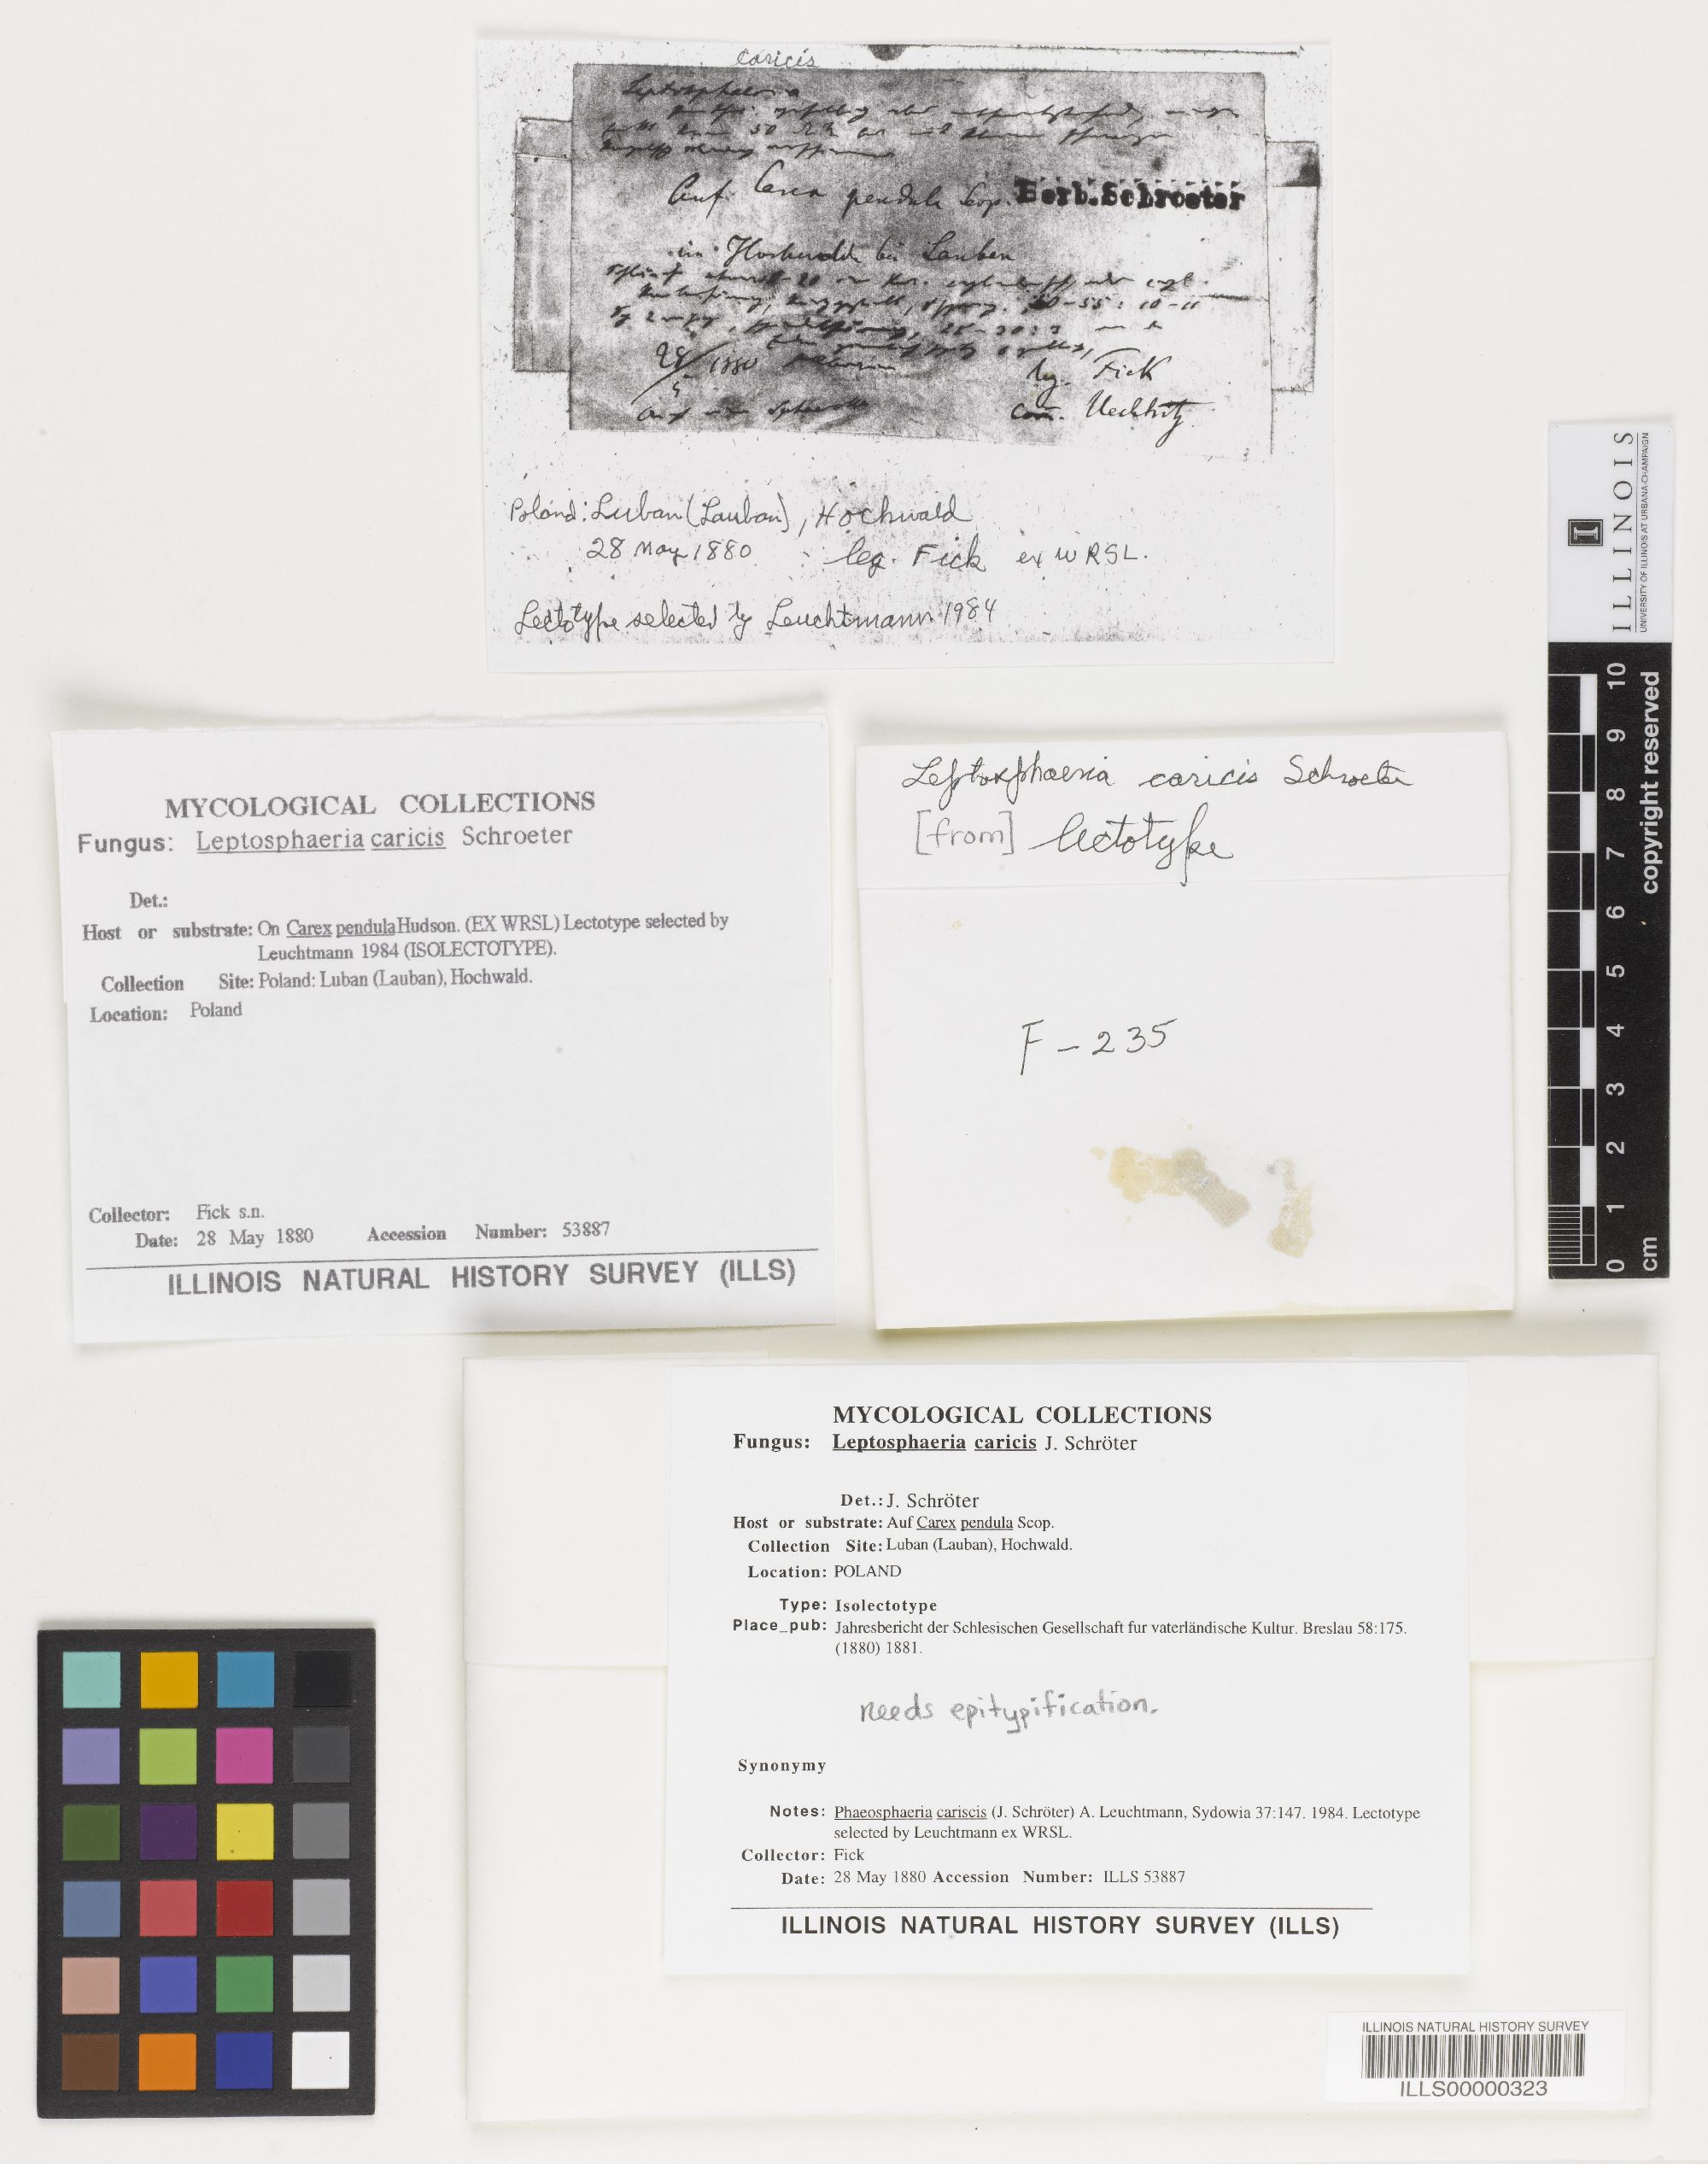 caricis
Leptosphaeria
Auf Carex pendula Scop. Herb. Schroeter
bei Lauben
28/5 1880
lg. Fick
com. Uechtritz
Poland: Luban (Lauban), Hochwald
28 May 1880 leg. Fick ex WRSL.
Lectotype selected by Leuchtmann 1984
MYCOLOGICAL COLLECTIONS
Fungus: Leptosphaeria caricis Schroeter
Det.:
Host or substrate: On Carex pendula Hudson. (EX WRSL) Lectotype selected by
Leuchtmann 1984 (ISOLECTOTYPE).
Collection Site: Poland: Luban (Lauban), Hochwald.
Location: Poland
Collector: Fick s.n.
Date: 28 May 1880 Accession Number: 53887
ILLINOIS NATURAL HISTORY SURVEY (ILLS)
Leptosphaeria caricis Schroeter
[from] lectotype
F-235
MYCOLOGICAL COLLECTIONS
Fungus: Leptosphaeria caricis J. Schröter
Det.: J. Schröter
Host or substrate: Auf Carex pendula Scop.
Collection Site: Luban (Lauban), Hochwald.
Location: POLAND
Type: Isolectotype
Place_pub: Jahresbericht der Schlesischen Gesellschaft fur vaterländische Kultur. Breslau 58:175.
(1880) 1881.
needs epitypification.
Synonymy
Notes: Phaeosphaeria cariscis (J. Schröter) A. Leuchtmann, Sydowia 37:147. 1984. Lectotype
selected by Leuchtmann ex WRSL.
Collector: Fick
Date: 28 May 1880 Accession Number: ILLS 53887
ILLINOIS NATURAL HISTORY SURVEY (ILLS)
ILLINOIS NATURAL HISTORY SURVEY
ILLS00000323
ILLINOIS
UNIVERSITY OF ILLINOIS AT URBANA-CHAMPAIGN
0 1 2 3 4 5 6 7 8 9 10
cm copyright reserved